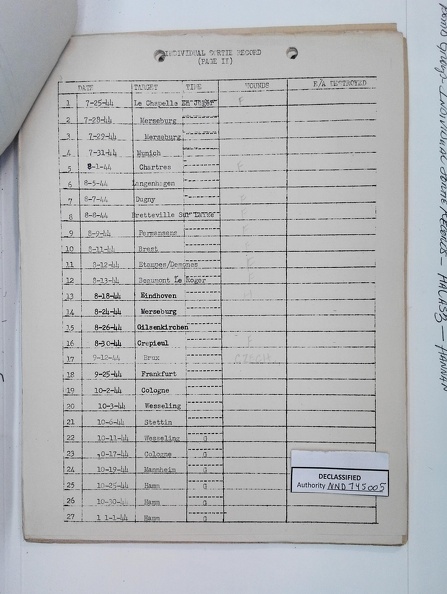 INDIVIDUAL SORTIE RECORD
(PAGE II)
DATE TARGET TIME WOUNDS E/A DESTROYED
1 7-25-44 Le Chapelle
2 7-28-44 Merseburg
3 7-29-44 Merseburg
4 7-31-44 Munich
5 8-1-44 Chartres
6 8-5-44 Langenhagen
7 8-7-44 Dugny
8 8-8-44 Bretteville Sur
9 8-9-44 Permasens
10 8-11-44 Brest
11 8-12-44 Etampes/
12 8-13-44 Beaumont Le Roger
13 8-18-44 Eindhoven
14 8-24-44 Merseburg
15 8-26-44 Gilsenkirchen
16 8-30-44 Crepieul
17 9-12-44 Brux
18 9-25-44 Frankfurt
19 10-2-44 Cologne
20 10-3-44 Wesseling
21 10-6-44 Stettin
22 10-11-44 Wesseling G
23 10-17-44 Cologne G
24 10-19-44 Mannheim G
25 10-25-44 Hamm G
26 10-30-44 Hamm G
27 11-1-44 Hamm G
DECLASSIFIED
Authority NND 745005
INDIVIDUAL SORTIE RECORDS -